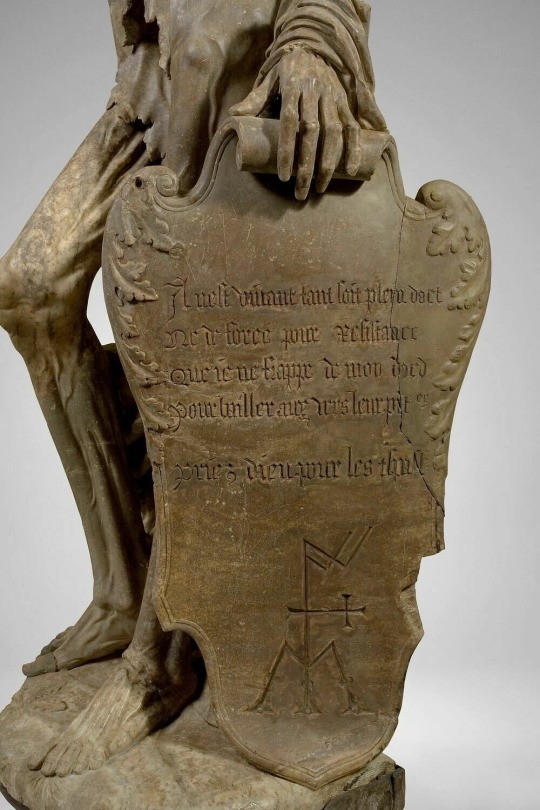 Il nest viuant tant soit plein dart
Ne de force pour Resistance
Que ie ne frappe de mon dard
Pour bailler aux vers leur
Priez dieu pour les